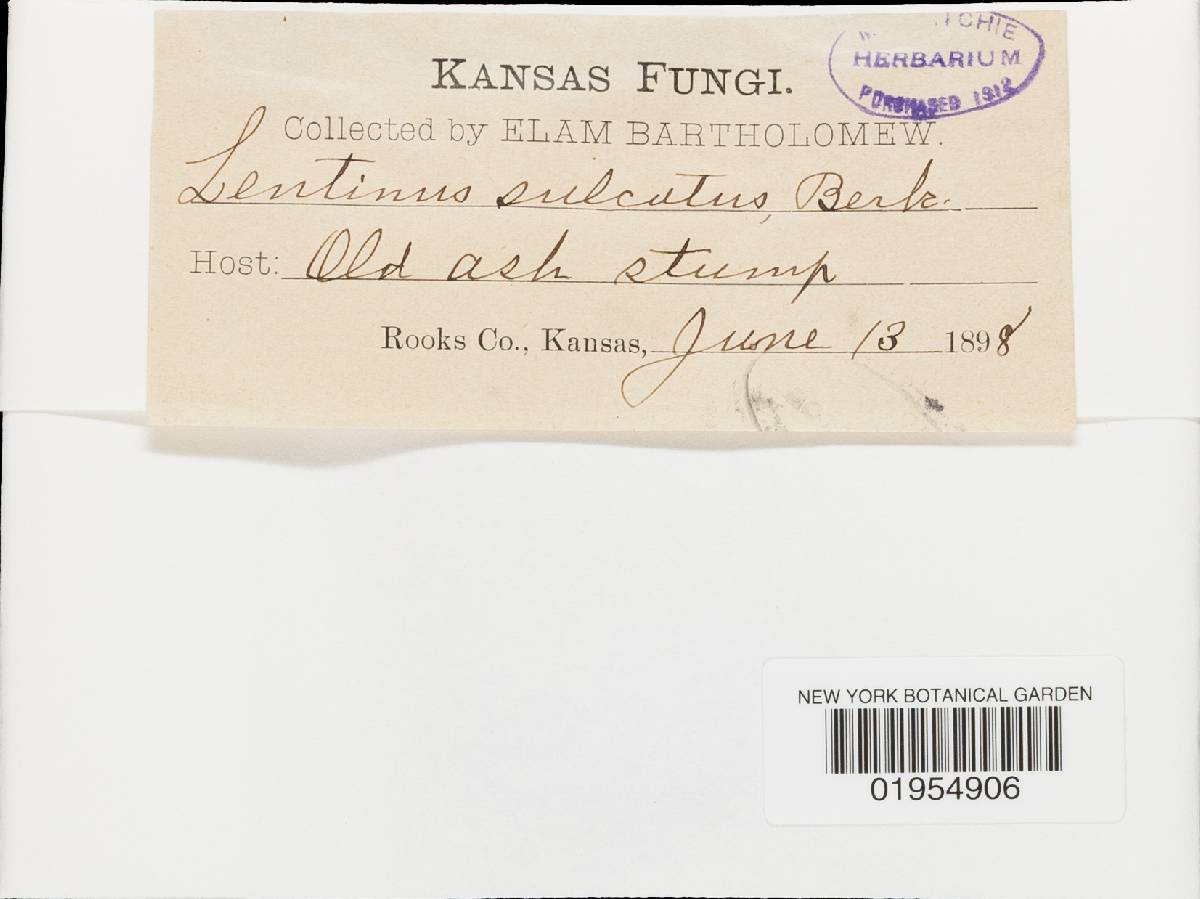 KANSAS FUNGI.
HERBARIUM
PURCHASED 1912
Collected by ELAM BARTHOLOMEW.
Lentinus sulcatus, Berk.
Host: Old ash stump
Rooks Co., Kansas, June 13 1898
NEW YORK BOTANICAL GARDEN
01954906